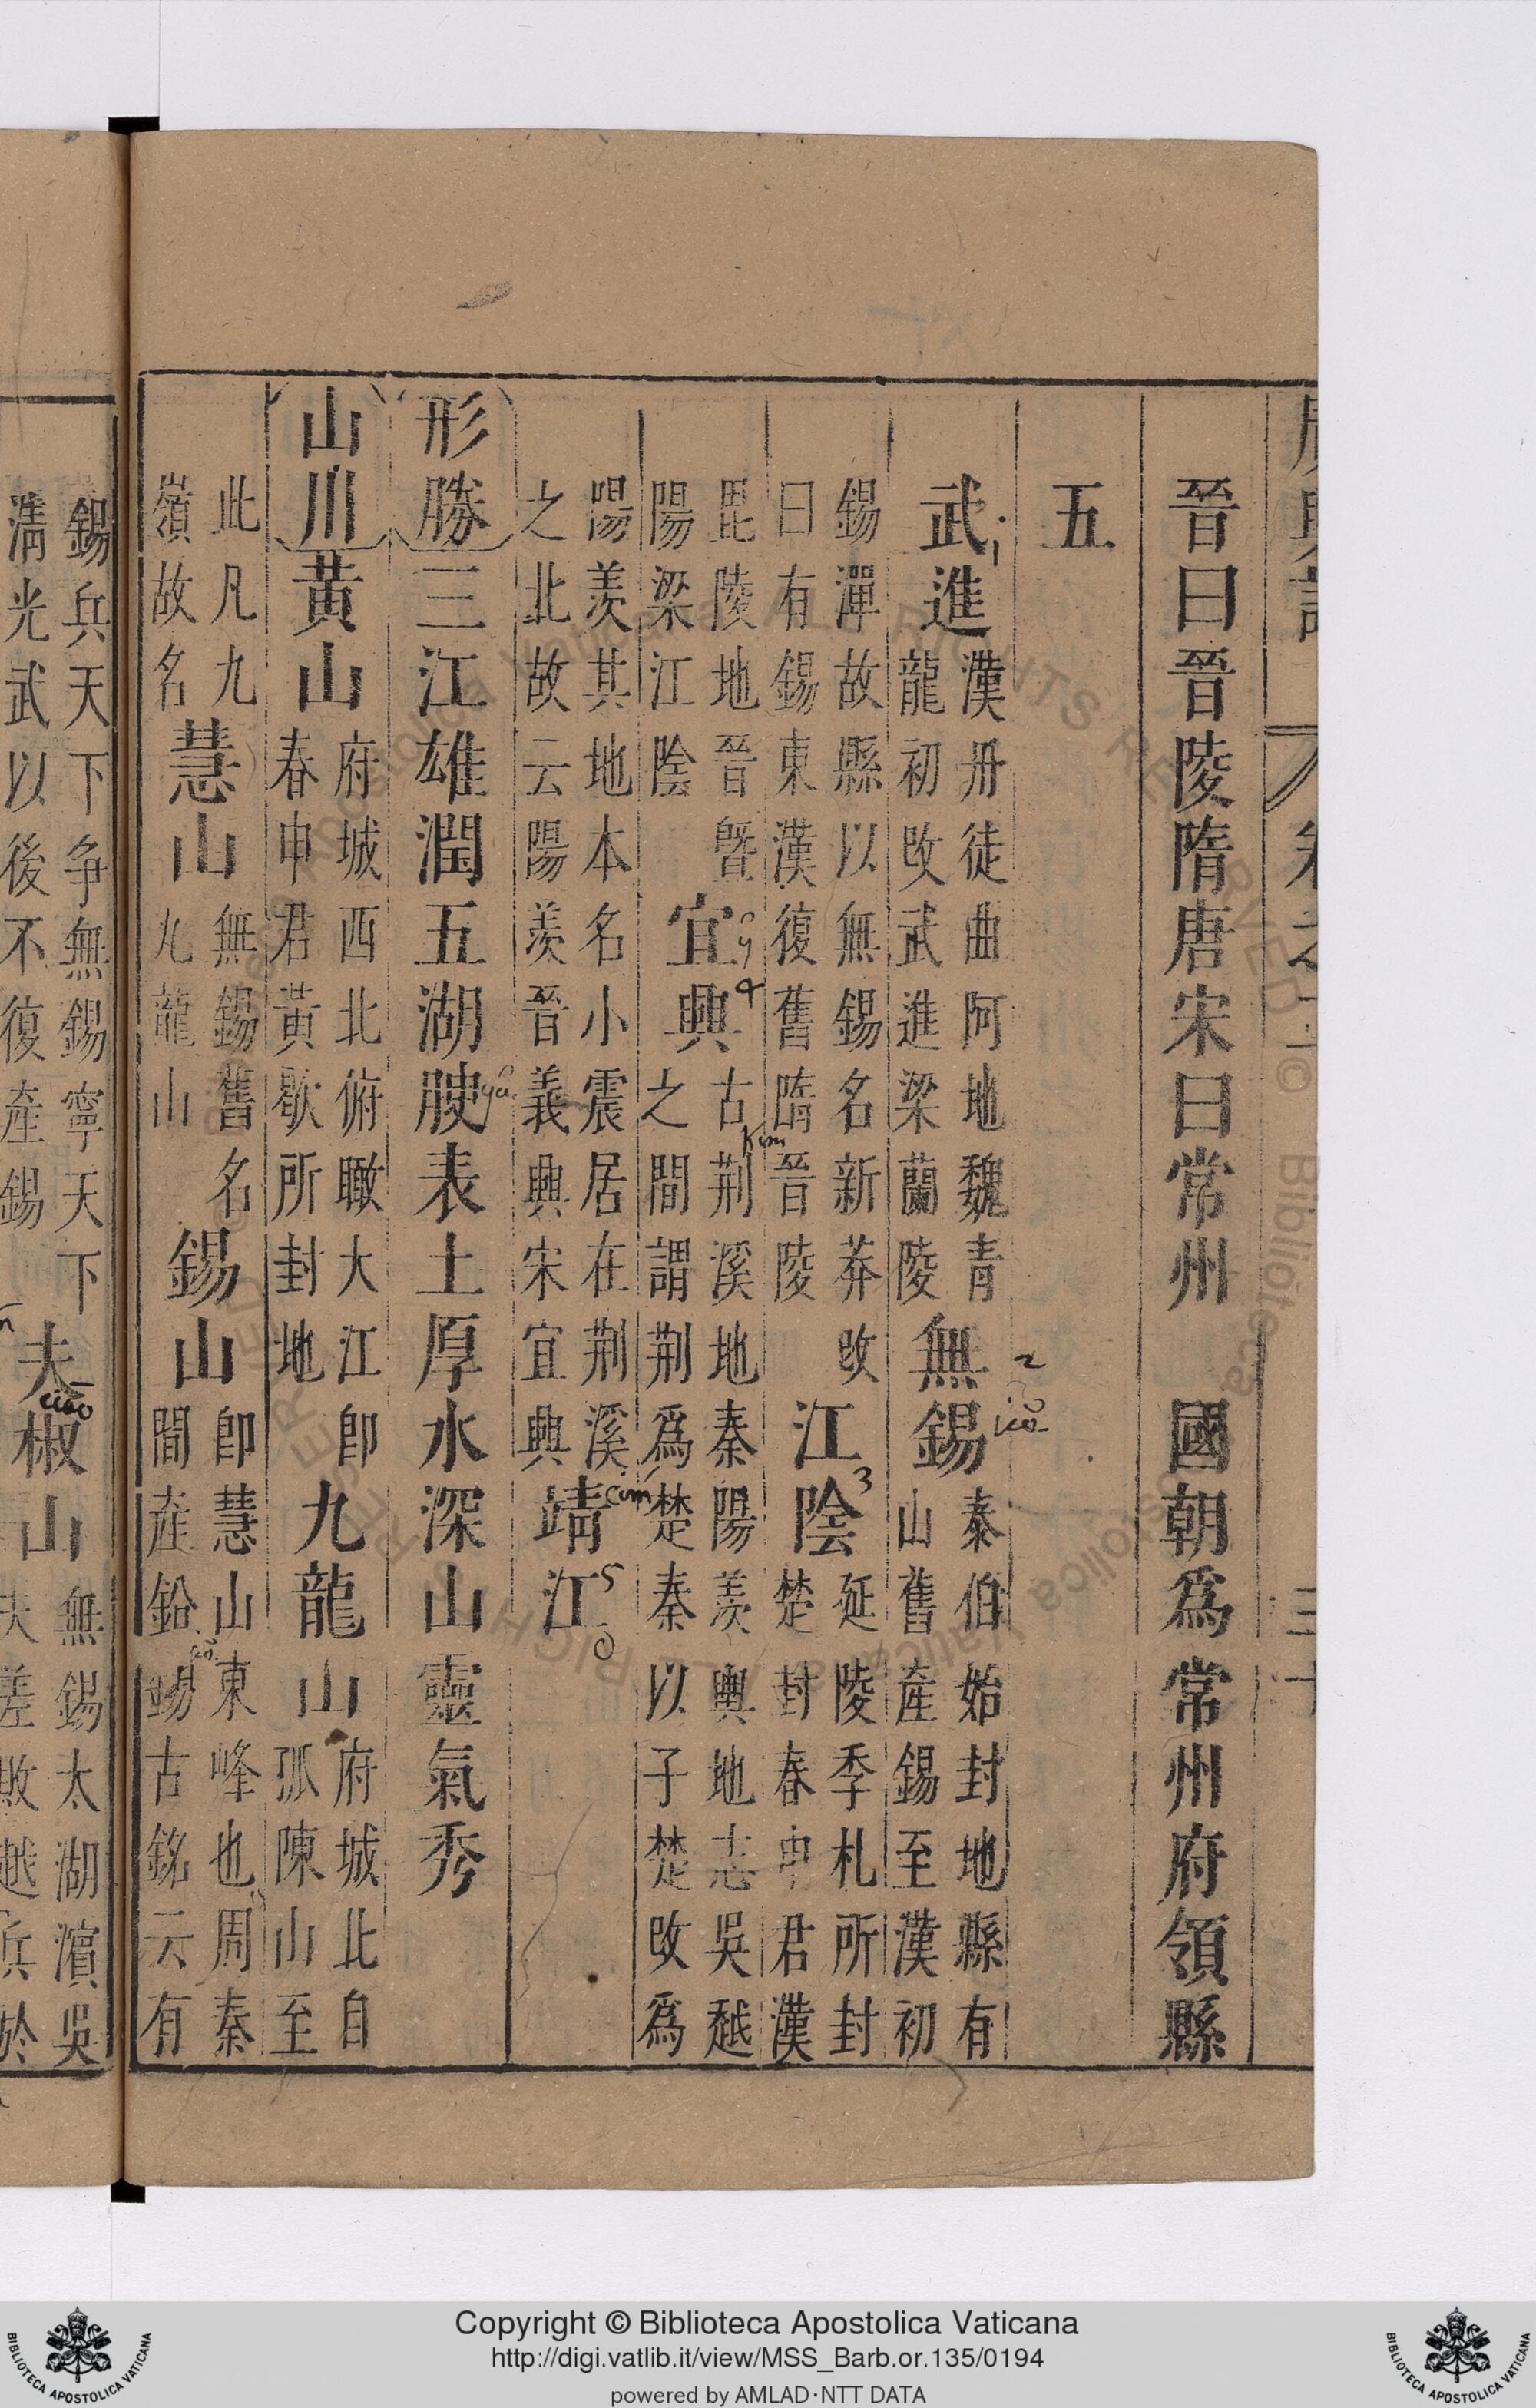 晉曰晉陵隋唐宋曰常州　國朝爲常州府領縣
五
武進漢丹徒曲阿地魏青
龍初改武進梁蘭陵無錫秦伯始封地縣有
山舊產錫至漢初
錫殫故縣以無錫名新莽改
曰有錫東漢復舊隋晉陵江陰延陵季札所封
楚封春申君漢
毘陵地晉曁
陽梁江陰宜興古荆溪地秦陽羡輿地志吳越
之間謂荆爲楚秦以子楚改爲
陽羡其地本名小震居在荆溪
之北故云陽羡晉義興宋宜興靖江
形勝三江雄潤五湖腴表土厚水深山靈氣秀
山川黃山府城西北俯瞰大江卽
春申君黃歇所封地九龍山府城北自
孤陳山至
此凡九
嶺故名慧山無錫舊名
九龍山錫山卽慧山東峰也周秦
間產鉛錫古銘云有
錫兵天下争無錫寧天下
淸光武以後不復產錫夫椒山無錫太湖濵吳
夫差敗越兵於
Kim
cim
ciao
1
2
3
4
5
Copyright © Biblioteca Apostolica Vaticana
http://digi.vatlib.it/view/MSS_Barb.or.135/0194
powered by AMLAD·NTT DATA
BIBLIOTECA APOSTOLICA VATICANA
BIBLIOTECA APOSTOLICA VATICANA